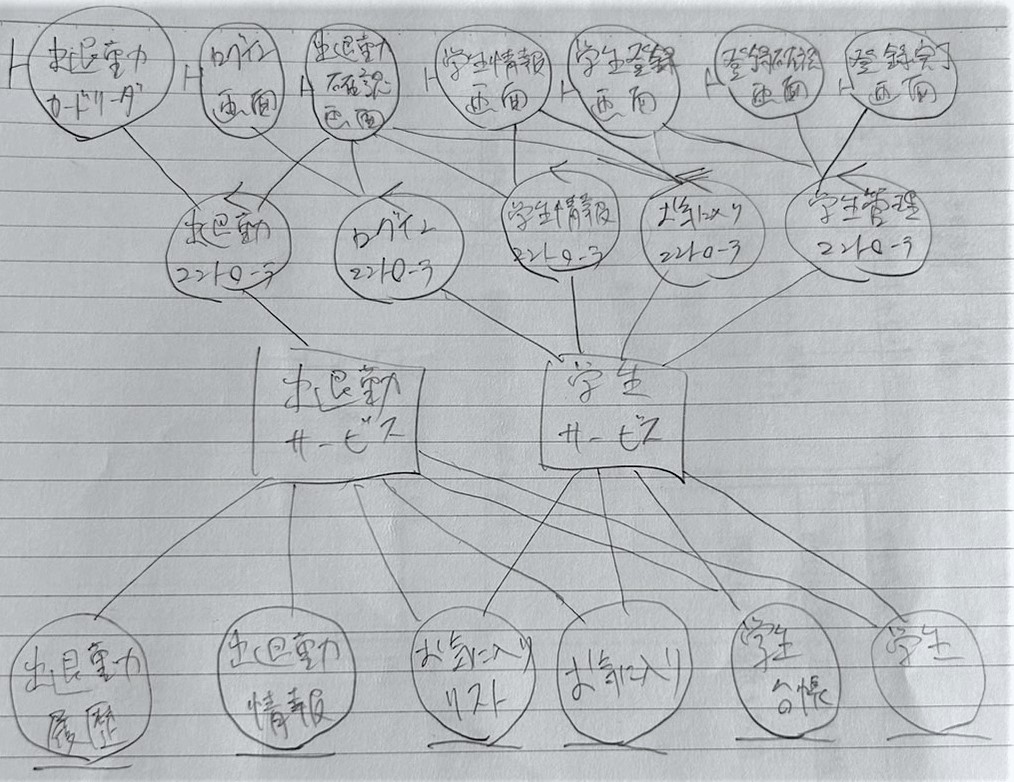 出退勤
カードリーダ
ログイン
画面
出退勤
確認
画面
学生情報
画面
学生登録
画面
登録確認
画面
登録完了
画面
出退勤
コントローラ
ログイン
コントローラ
学生情報
コントローラ
お気に入り
コントローラ
学生管理
コントローラ
出退勤
サービス
学生
サービス
出退勤
履歴
出退勤
情報
お気に入り
リスト
お気に入り
学生
台帳
学生